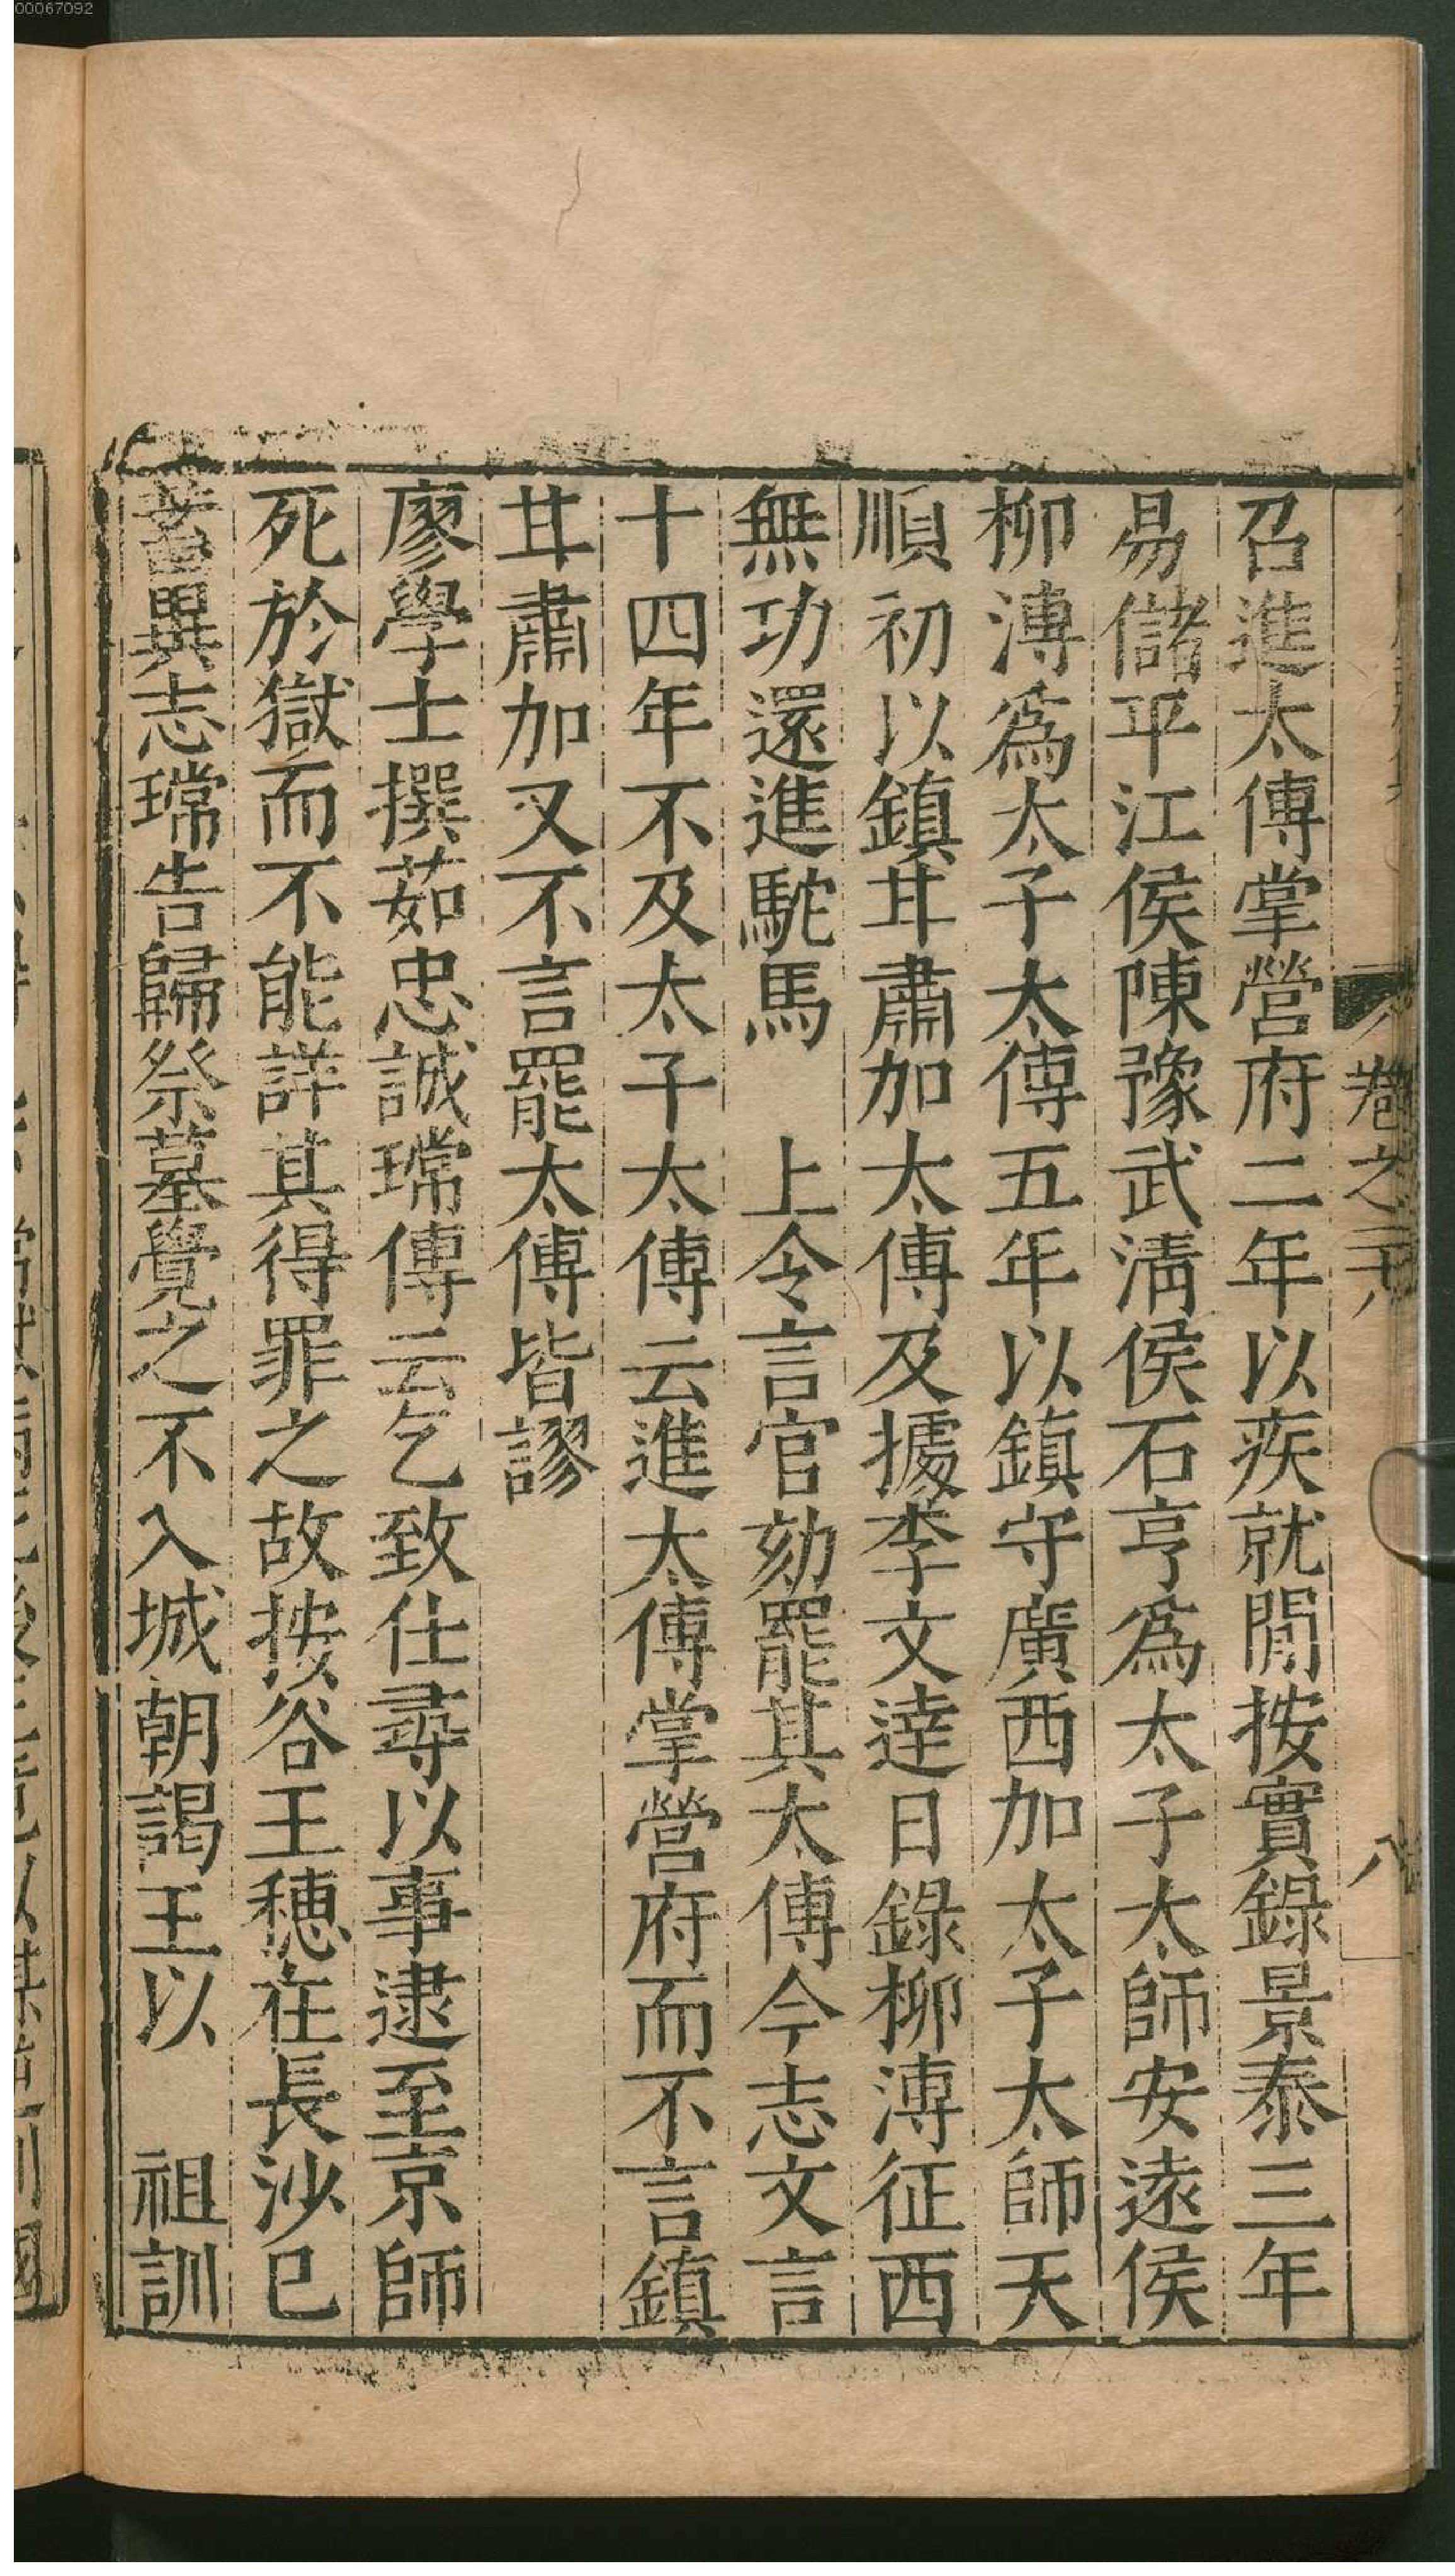 00067092
卷之二十八
八
召進太傅掌營府二年以疾就閒按實錄景泰三年
易儲平江侯陳豫武清侯石亨爲太子太師安遠侯
柳溥爲太子太傅五年以鎮守廣西加太子太師天
順初以鎮甘肅加太傅及據李文達日錄柳溥征西
無功還進駝馬　上令言官劾罷其太傅今志文言
十四年不及太子太傅云進太傅掌營府而不言鎮
甘肅加又不言罷太傅皆謬
廖學士撰茹忠誠瑺傳云乞致仕尋以事逮至京師
死於獄而不能詳其得罪之故按谷王穗在長沙已
蓄異志瑺告歸祭墓覺之不入城朝謁王以　祖訓